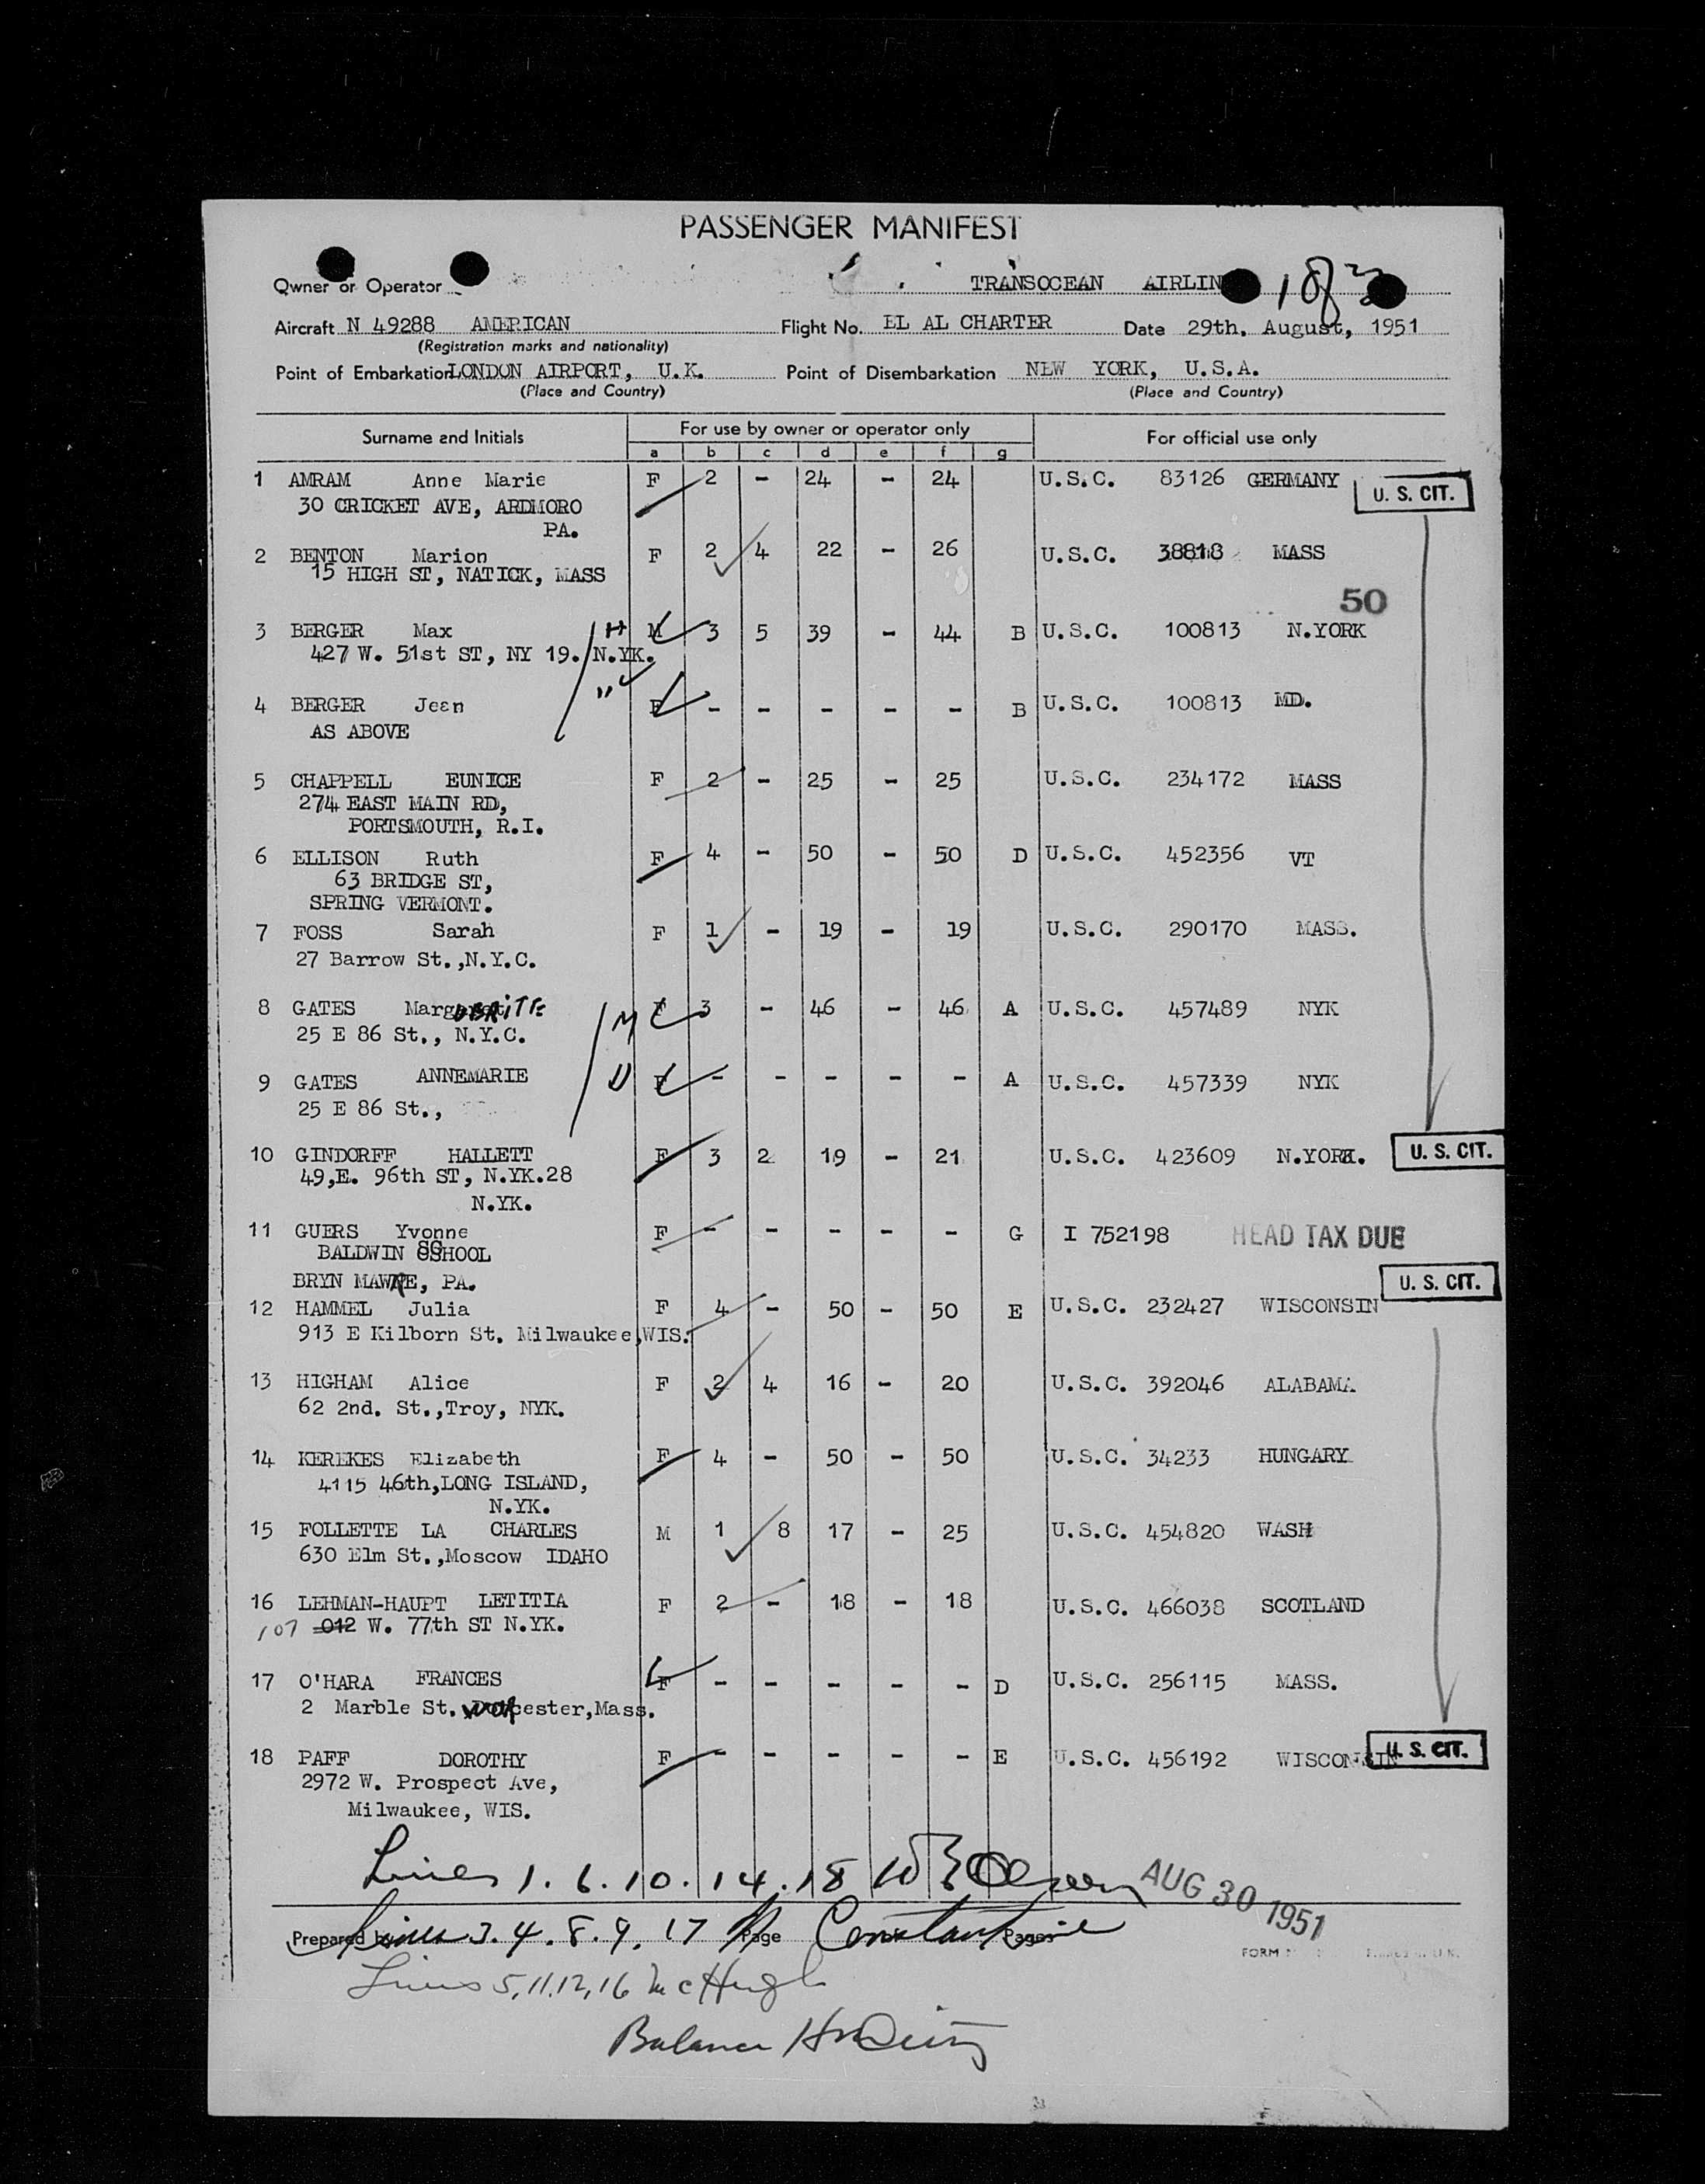 PASSENGER MANIFEST
Owner or Operator TRANSOCEAN AIRLIN
Aircraft N 49288 AMERICAN Flight No. EL AL CHARTER Date 29th. August, 1951
(Registration marks and nationality)
Point of Embarkation LONDON AIRPORT, U.K. Point of Disembarkation NEW YORK, U.S.A.
(Place and Country) (Place and Country)
Surname and Initials For use by owner or operator only For official use only
a b c d e f g
1 AMRAM Anne Marie F 2 - 24 - 24 U.S.C. 83126 GERMANY U. S. CIT.
30 CRICKET AVE, ARDMORO
PA.
2 BENTON Marion F 2 4 22 - 26 U.S.C. 38818 MASS
15 HIGH ST, NATICK, MASS
50
3 BERGER Max M 3 5 39 - 44 B U.S.C. 100813 N.YORK
427 W. 51st ST, NY 19. N.YK.
4 BERGER Jean F - - - - - B U.S.C. 100813 MD.
AS ABOVE
5 CHAPPELL EUNICE F 2 - 25 - 25 U.S.C. 234172 MASS
274 EAST MAIN RD,
PORTSMOUTH, R.I.
6 ELLISON Ruth F 4 - 50 - 50 D U.S.C. 452356 VT
63 BRIDGE ST,
SPRING VERMONT.
7 FOSS Sarah F 1 - 19 - 19 U.S.C. 290170 MASS.
27 Barrow St.,N.Y.C.
8 GATES F 3 - 46 - 46 A U.S.C. 457489 NYK
25 E 86 St., N.Y.C.
9 GATES ANNEMARIE F - - - - - A U.S.C. 457339 NYK
25 E 86 St.,
10 GINDORFF HALLETT F 3 2 19 - 21 U.S.C. 423609 N.YORK. U. S. CIT.
49,E. 96th ST, N.YK.28
N.YK.
11 GUERS Yvonne F - - - - - G I 752198 HEAD TAX DUE
BALDWIN SCHOOL
BRYN MAWRE, PA. U. S. CIT.
12 HAMMEL Julia F 4 - 50 - 50 E U.S.C. 232427 WISCONSIN
913 E Kilborn St. Milwaukee,WIS.
13 HIGHAM Alice F 2 4 16 - 20 U.S.C. 392046 ALABAMA
62 2nd. St.,Troy, NYK.
14 KEREKES Elizabeth F 4 - 50 - 50 U.S.C. 34233 HUNGARY
4115 46th,LONG ISLAND,
N.YK.
15 FOLLETTE LA CHARLES M 1 8 17 - 25 U.S.C. 454820 WASH
630 Elm St.,Moscow IDAHO
16 LEHMAN-HAUPT LETITIA F 2 - 18 - 18 U.S.C. 466038 SCOTLAND
107 012 W. 77th ST N.YK.
17 O'HARA FRANCES F - - - - - D U.S.C. 256115 MASS.
2 Marble St. Worcester,Mass.
18 PAFF DOROTHY F - - - - - E U.S.C. 456192 WISCONSIN U. S. CIT.
2972 W. Prospect Ave,
Milwaukee, WIS.
Lines 1. 6. 10. 14. 18 AUG 30 1951
Prepared by Page Pages
Lines 3. 4. 8. 9. 17
FORM
Lines 5, 11, 12, 16 McHugh
Balance